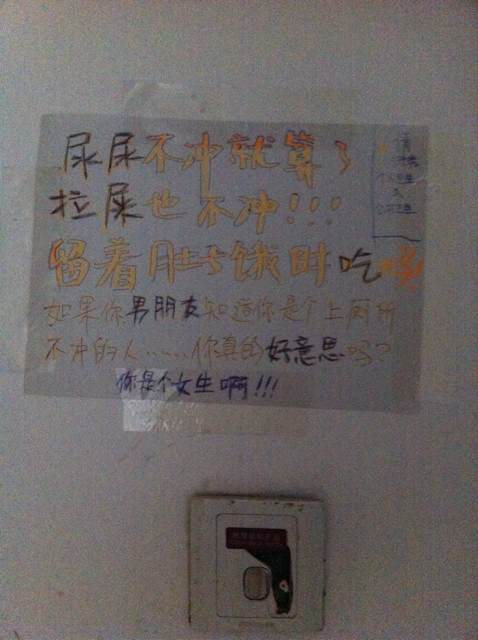 尿尿不冲就算了
拉屎也不冲!!!
留着肚子饿时吃
如果你男朋友知道你是个上厕所
不冲的人......你真的好意思吗?
你是个女生啊!!!